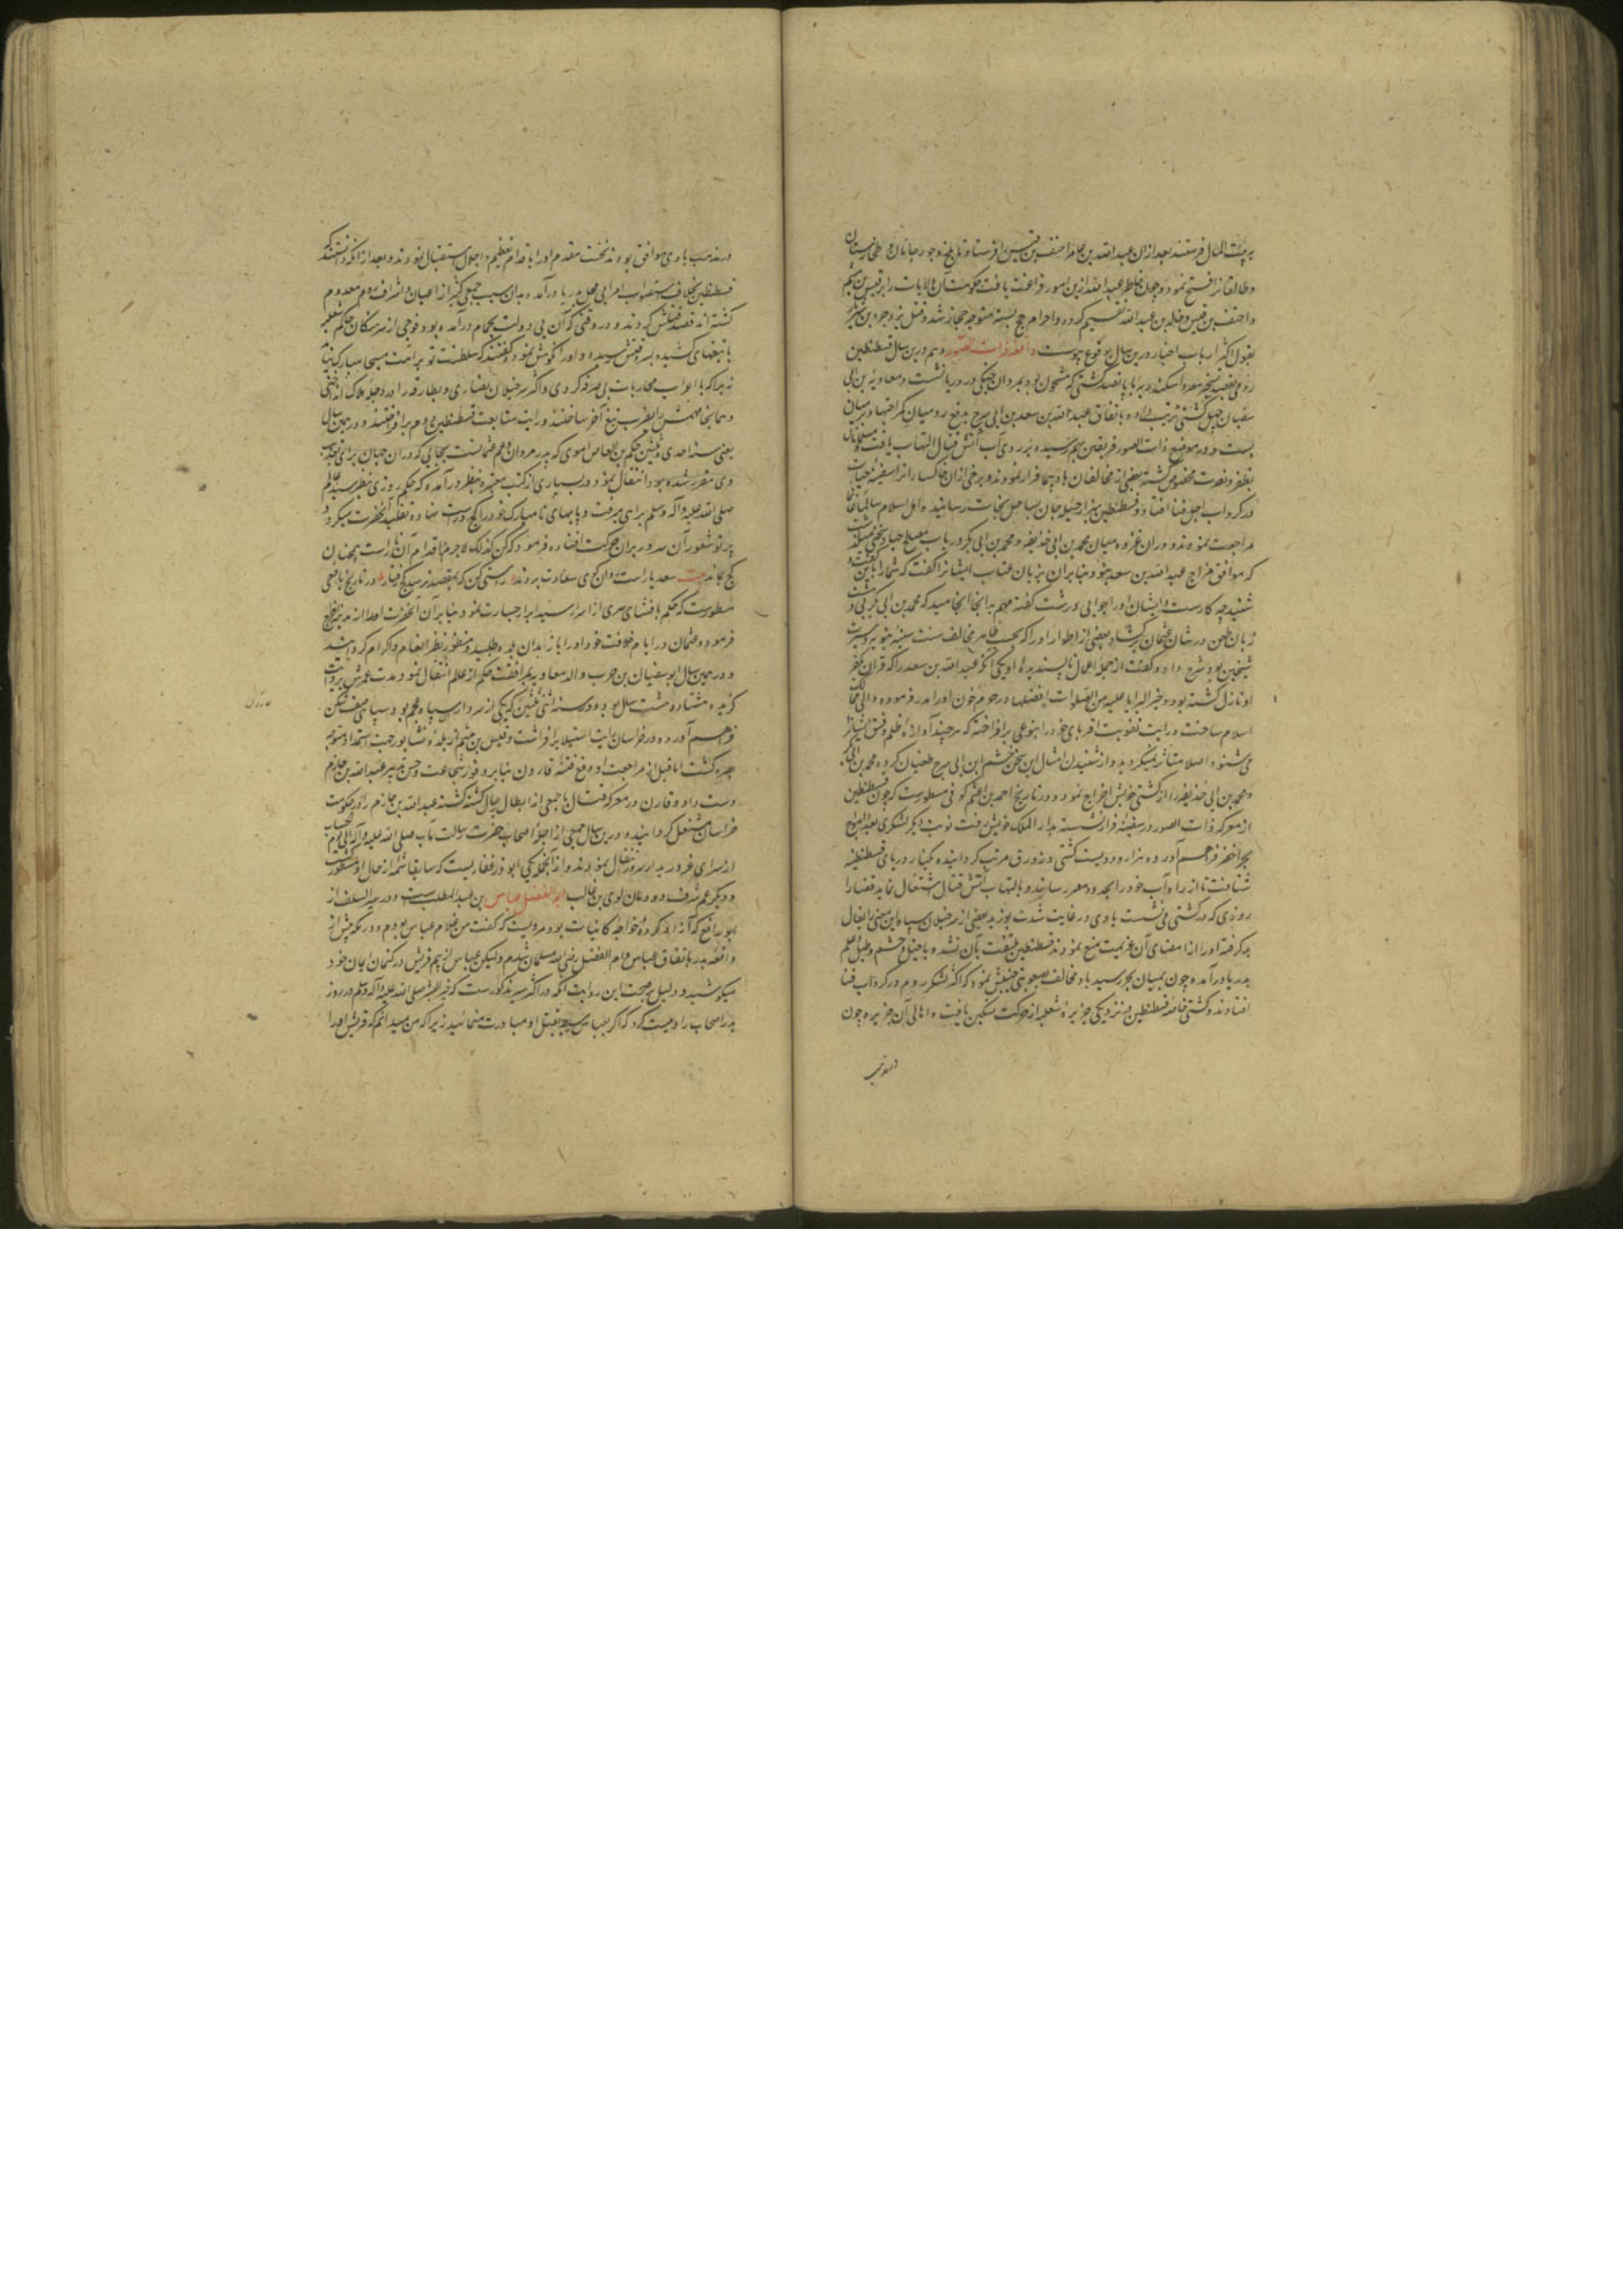 به بیت المال فرستند بعد از ان عبدالله بن عامر احنف بن قیس را فرستاد تا بلخ و جورجانان و طخارستان
و طالقانرا فتح نمود و چون خاطر عبدالله ازین امور فراغت یافت حکومت آن ولایات را بر قیس بن هیثم
و احنف بن قیس و خالد بن عبدالله تقسیم کرده و احرام حج بسته متوجه حجاز شد و قتل یزدجرد بن شهریار
بقول اکثر ارباب اخبار درین سال بوقوع پیوست واقعه ذات الصور و هم درین سال قسطنطین
رومی بقصد تسخیر مصر و اسکندریه با پانصد کشتی که مشحون بود بمردان جنکی در دریا نشست و معاویه بن ابی
سفیان چهل کشتی ترتیب داده باتفاق عبدالله بن سعد بن ابی سرح بدفع رومیان کمر اجتهاد بر میان
بست و در موضع ذات الصور فریقین بهم رسیده بر روی آب آتش قتال التهاب یافت مسلمانان
بظفر و نصرت مخصوص کشته بعضی از مخالفان بادپیما فرار نمودند و برخی ازان خاکسارانرا سفینه حیات
در کرداب اجل فنا افتاد و قسطنطین بهزار حیله جان بساحل نجات رسانید و اهل اسلام سالما غانما
مراجعت نمودند و در ان غزوه میان محمد بن ابی حذیفه و محمد بن ابی بکر در باب مصالح جهاد سخنی میکفتند
که موافق مزاج عبدالله بن سعد نبود بنابران بزبان عتاب ایشانرا کفت که شما را باین گفت و
شنید چه کارست و ایشان او را جوابی درشت کفته مهم بدانجا انجامید که محمد بن ابی بکر
زبان طعن در شان عثمان بکشاد و بعضی از اطوار او را که بحسب ظاهر مخالف سنت سنیه نبویه و سیرت
شیخین بود شرح داد و کفت از جمله اعمال ناپسندیده او یکی آنکه عبدالله بن سعد را که قران بکفر
او نازل کشته بود و خیر البرایا علیه من الصلوات افضلها در حرم خون او را هدر فرموده والی ممالک
اسلام ساخت و رایت تقویت اقربای خود را بنوعی برافراخته که هرچند آوازه ظلم و فسق ایشانرا
می شنود اصلا متاثر نمیکردد و از شنیدن امثال این سخن خشم ابن ابی سرح طغیان کرده محمد بن ابی بکر
و محمد بن ابی حذیفه را از کشتی خویش اخراج نمود و در تاریخ احمد بن اعثم کوفی مسطورست که چون قسطنطین
از معرکه ذات الصور در سفینه فرار نشسته بدار الملک خویش رفت نوبت دیگر لشکری
بحر اخضر فراهم آورده هزار و دویست کشتی و زورق مرتب کردانیده بکنار دریای قسطنطنیه
شتافت تا از راه آب خود را بحدود مصر رساند و بالتهاب آتش قتال اشتغال نماید قضا را
روزی که در کشتی می نشست بادی در غایت شدت بوزید بعضی از سرخیلان سپاه این معنی را بفال
بد کرفته او را از امضای آن عزیمت منع نمودند قسطنطین ملتفت بآن نشد و با خیل و حشم و طبل و علم
بدریا درآمد و چون بمیان بحر رسید باد مخالف بصعوبتی جنبش نمود که اکثر لشکر روم در کرداب فنا
افتادند و کشتی خاصه قسطنطین در نزدیکی جزیره سقلیه از حرکت تسکین یافت و اهالی آن جزیره چون
در مذهب
در مذهب با وی موافق بودند نخست مقدم او را باقدام تعظیم و اجلال استقبال نمودند و بعد از آنکه دانستند که
قسطنطین بخلاف استصواب امرا بی محل بدریا درآمد و بدان سبب جمعی کثیر از اعیان و اشراف روم معدوم
کشته اند قصد قتلش کردند و در وقتی که آن بی دولت بحمام درآمده بود فوجی از سرهنکان حاکم سقلیه
با تیغهای کشیده بسر وقتش رسیده و او را نکوهش نمودند و کفتند که سلطنت تو بر امت مسیحا مبارک نیامد
زیرا که با اعراب محاربات بی صرفه کردی و اکثر سرخیلان نصاری و بطارقه را در دجله هلاک انداختی
و همانجا مهمش را بضرب تیغ آخر ساختند و رایت متابعت قسطنطین دوم برافراختند و در همین سال
یعنی سنه احدی و ثلثین حکم بن العاص اموی که پدر مروان و عم عثمانست بجایی که در ان جهان برای تعذیب
وی مقرر شده بود انتقال نمود در بسیاری از کتب معتبره بنظر درآمده که حکم روزی بنظر سید عالم
صلی الله علیه وآله وسلم براهی میرفت و پایهای نامبارک خود را کج و راست نهاده تقلید آنحضرت میکرد و
پرتو شعور آن سرور بران حرکت افتاده فرمود که کن کذلک لاجرم اقدام آن ناراست همچنان
کج بماند بیت سعدیا راست روان کوی سعادت بردند راستی کن که بمقصد نرسد کج رفتار و در تاریخ یافعی
مسطورست که حکم بافشای سری از اسرار سید ابرار جسارت نمود بنابر آن آنحضرت او را از مدینه اخراج
فرمود و عثمان در ایام خلافت خود او را باز بدان بلده طلبید و منظور نظر انعام و اکرام کردانید
و در همین سال ابوسفیان بن حرب والد معاویه بمرافقت حکم از عالم انتقال نمود و مدت عمرش بروایت
کزیده هشتاد و هشت سال بود و در سنه اثنی و ثلثین که یکی از سرداران سپاه عجم بود سپاهی صف شکن
فراهم آورده در خراسان رایت استیلا برافراشت و قیس بن هیثم از بلده نشابور جهت استمداد متوجه
بصره کشت اما قبل از مراجعت او دفع فتنه قارون بنابر وفور شجاعت و حسن تدبیر عبدالله بن خازم
دست داد و قارن در معرکه قتال با جمعی از ابطال رجال کشته کشته عبدالله بن خازم در حکومت
خراسان مستقل کردانید و درین سال جمعی از اجله اصحاب حضرت رسالت مآب صلی الله علیه وآله
از سرای غرور بدار سرور انتقال نمودند و از آنجمله یکی ابوذر غفاریست که سابقا شمه از حال او مسطور کشت
و دیگر عم شرف دودمان لوی بن غالب ابوالفضل عباس بن عبدالمطلب است و در سیر السلف از
ابو رافع که آزاد کرده خواجه کاینات بود مرویست که کفت من غلام عباس بودم و در مکه پیش از
واقعه بدر باتفاق عباس و ام الفضل رضی الله مسلمان شدم ولیکن عباس از بیم قریش در کتمان ایمان خود
میکوشید و دلیل بر صحت این روایت آنکه در اکثر سیر مذکورست که خیر البشر صلی الله علیه وآله وسلم در روز
بدر اصحاب را وصیت کرد که اگر بعباس رسید بقتل او مبادرت منمائید زیرا که من میدانم که قریش او را